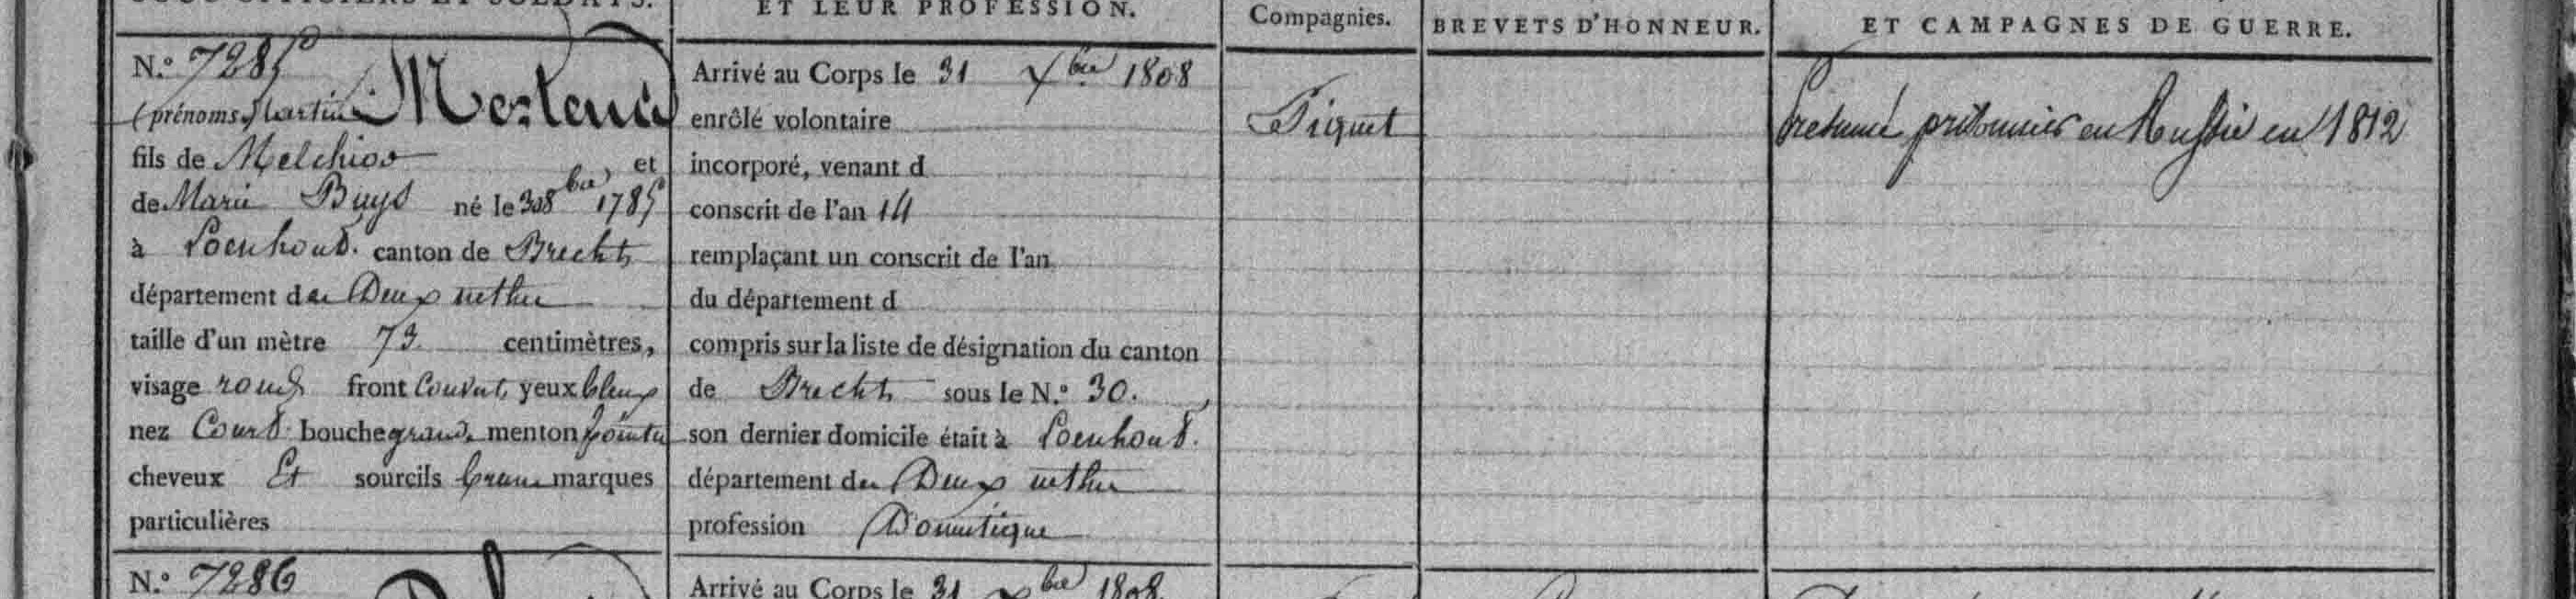 SOUS-OFFICIERS ET SOLDATS.
N.º 7285 Mertens
(prénoms) Martin
fils de Melchior et
de Marie Buys né le 30 8bre 1785
à Loenhout. canton de Brecht
département des Deux nethes
taille d'un mètre 73 centimètres,
visage rond front Couvert yeux bleus
nez Court bouche grande menton pointu
cheveux Et sourcils bruns marques
particulières
N.º 7286
ET LEUR PROFESSION.
Arrivé au Corps le 31 Xbre 1808
enrôlé volontaire
incorporé, venant d
conscrit de l'an 14
remplaçant un conscrit de l'an
du département d
compris sur la liste de désignation du canton
de Brecht sous le N.º 30.
son dernier domicile était à Loenhout.
département des Deux nethes
profession Domestique
Arrivé au Corps le 31 Xbre 1808
Compagnies.
Piquet
BREVETS D'HONNEUR.
ET CAMPAGNES DE GUERRE.
Présumé prisonnier en Russie en 1812